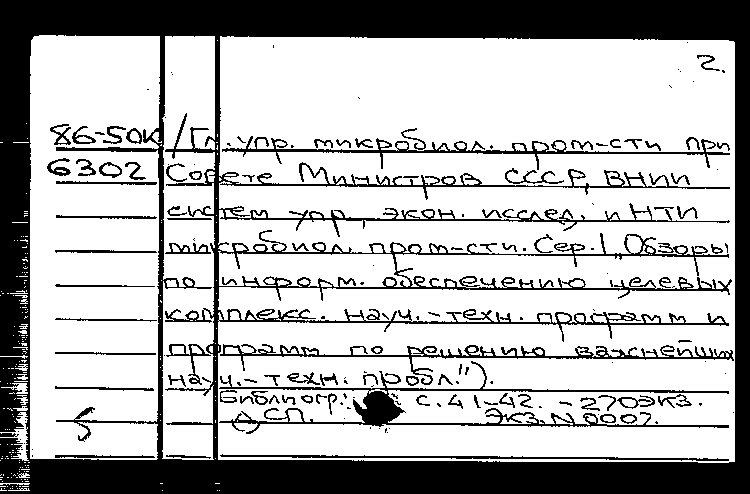 2.
86-50к /Гл. упр. микробиол. пром-сти при
6302 Совете Министров СССР, ВНИИ
систем упр., экон. исслед. и НТИ
микробиол. пром-сти. Сер. 1 „Обзоры
по информ. обеспечению целевых
комплекс. науч.-техн. программ и
программ по решению важнейших
науч.-техн. пробл.").
Библиогр.: с. 41-42. - 270 экз.
ДСП. Экз. N 0007.